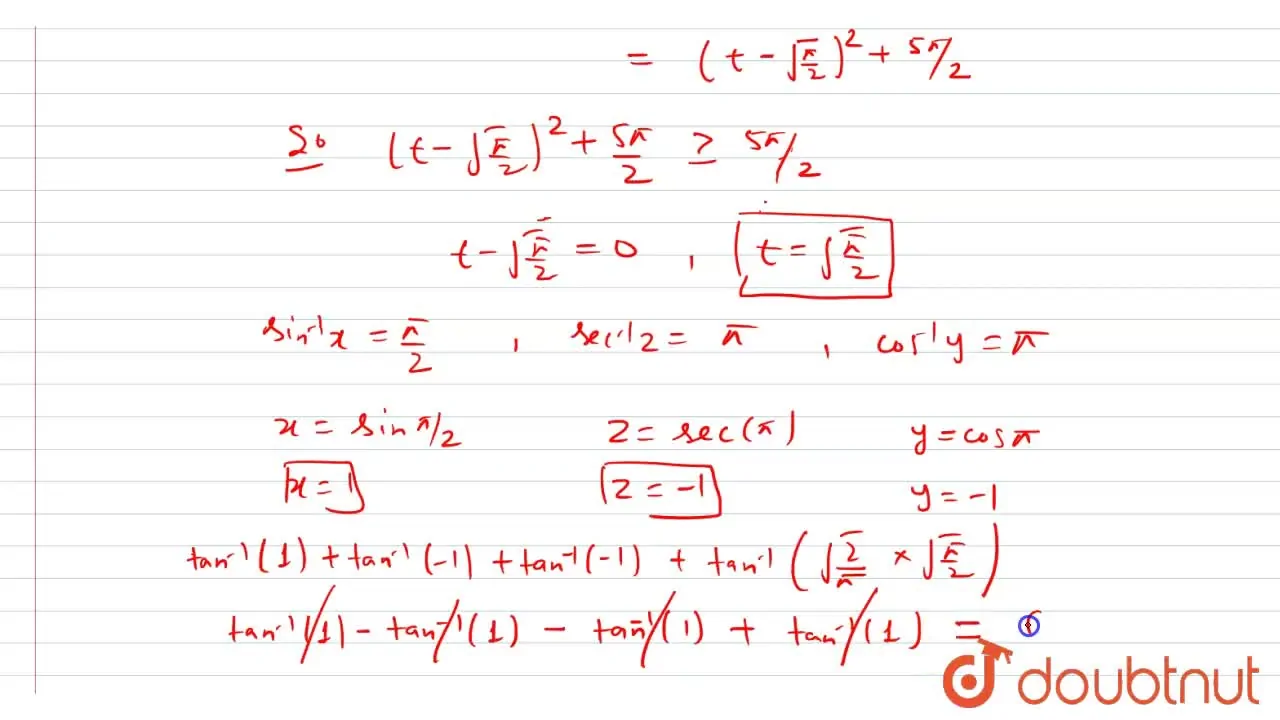 = (t - √π/2)² + 5π/2
So (t - √π/2)² + 5π/2 ≥ 5π/2
t - √π/2 = 0 , t = √π/2
sin⁻¹x = π/2 , sec⁻¹z = π , cos⁻¹y = π
x = sin π/2 z = sec(π) y = cos π
x = 1 z = -1 y = -1
tan⁻¹(1) + tan⁻¹(-1) + tan⁻¹(-1) + tan⁻¹(√2/π × √π/2)
tan⁻¹(1) - tan⁻¹(1) - tan⁻¹(1) + tan⁻¹(1) =
doubtnut